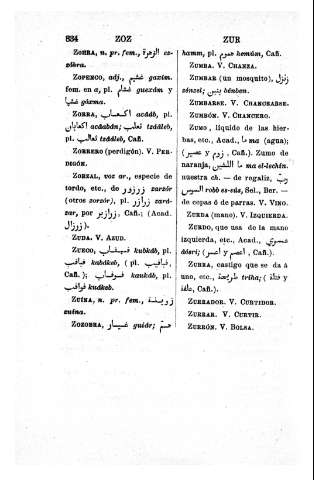 834 ZOZ ZUR
ZOHRA, n. pr. fem., الزهرة ez-
zóhra.
ZOPENCO, adj., غشيم gaxim.
fem. en a, pl. غشم guexúm y
غشما gáxma.
ZORRA, اكعاب acáâb, pl.
اكعابان acâabán; ثعلب tzáâleb,
pl. ثعالب tzáâleb, Cañ.
ZORRERO (perdigón). V. PER-
DIGÓN.
ZORZAL, voz ar., especie de
tordo, etc., de زرزور zorzór
(otros sorzór), pl. زرازر zará-
zar, por زرازير, Cañ.; (Acad.
زرزال).
ZUDA. V. AZUD.
ZUECO, قبقاب kubkáb, pl.
قباقب kabákeb, (pl. قباقيب,
Cañ.); قوقاب kaukáb, pl.
قواقب kuákeb.
ZUINA, n. pr. fem., زوينة
zuina.
ZOZOBRA, غيار guiár; هم
hamm, pl. هموم homúm, Cañ.
ZUMBA. V. CHANZA.
ZUMBAR (un mosquito), زنزل
zénzel; بنبن bénben.
ZUMBARSE. V. CHANCEARSE.
ZUMBÓN. V. CHANCERO.
ZUMO, líquido de las hier-
bas, etc., Acad., ما ma (agua);
(عصير y زوم, Cañ.). Zumo de
naranja, ما اللشين ma el-lechín.
nuestra ch. — de rogaliz, رب
السوس robb es-sús, Sei., Ber. —
de cepas ó de parras. V. VINO.
ZURDA (mano). V. IZQUIERDA.
ZURDO, que usa de la mano
izquierda, etc., Acad., عسري
âásri; (اعسر y اعسم, Cañ.).
ZURRA, castigo que se da á
uno, etc., طريحة triha; (قتلة y
علقة, Cañ.).
ZURRADOR. V. CURTIDOR.
ZURRAR. V. CURTIR.
ZURRÓN. V. BOLSA.